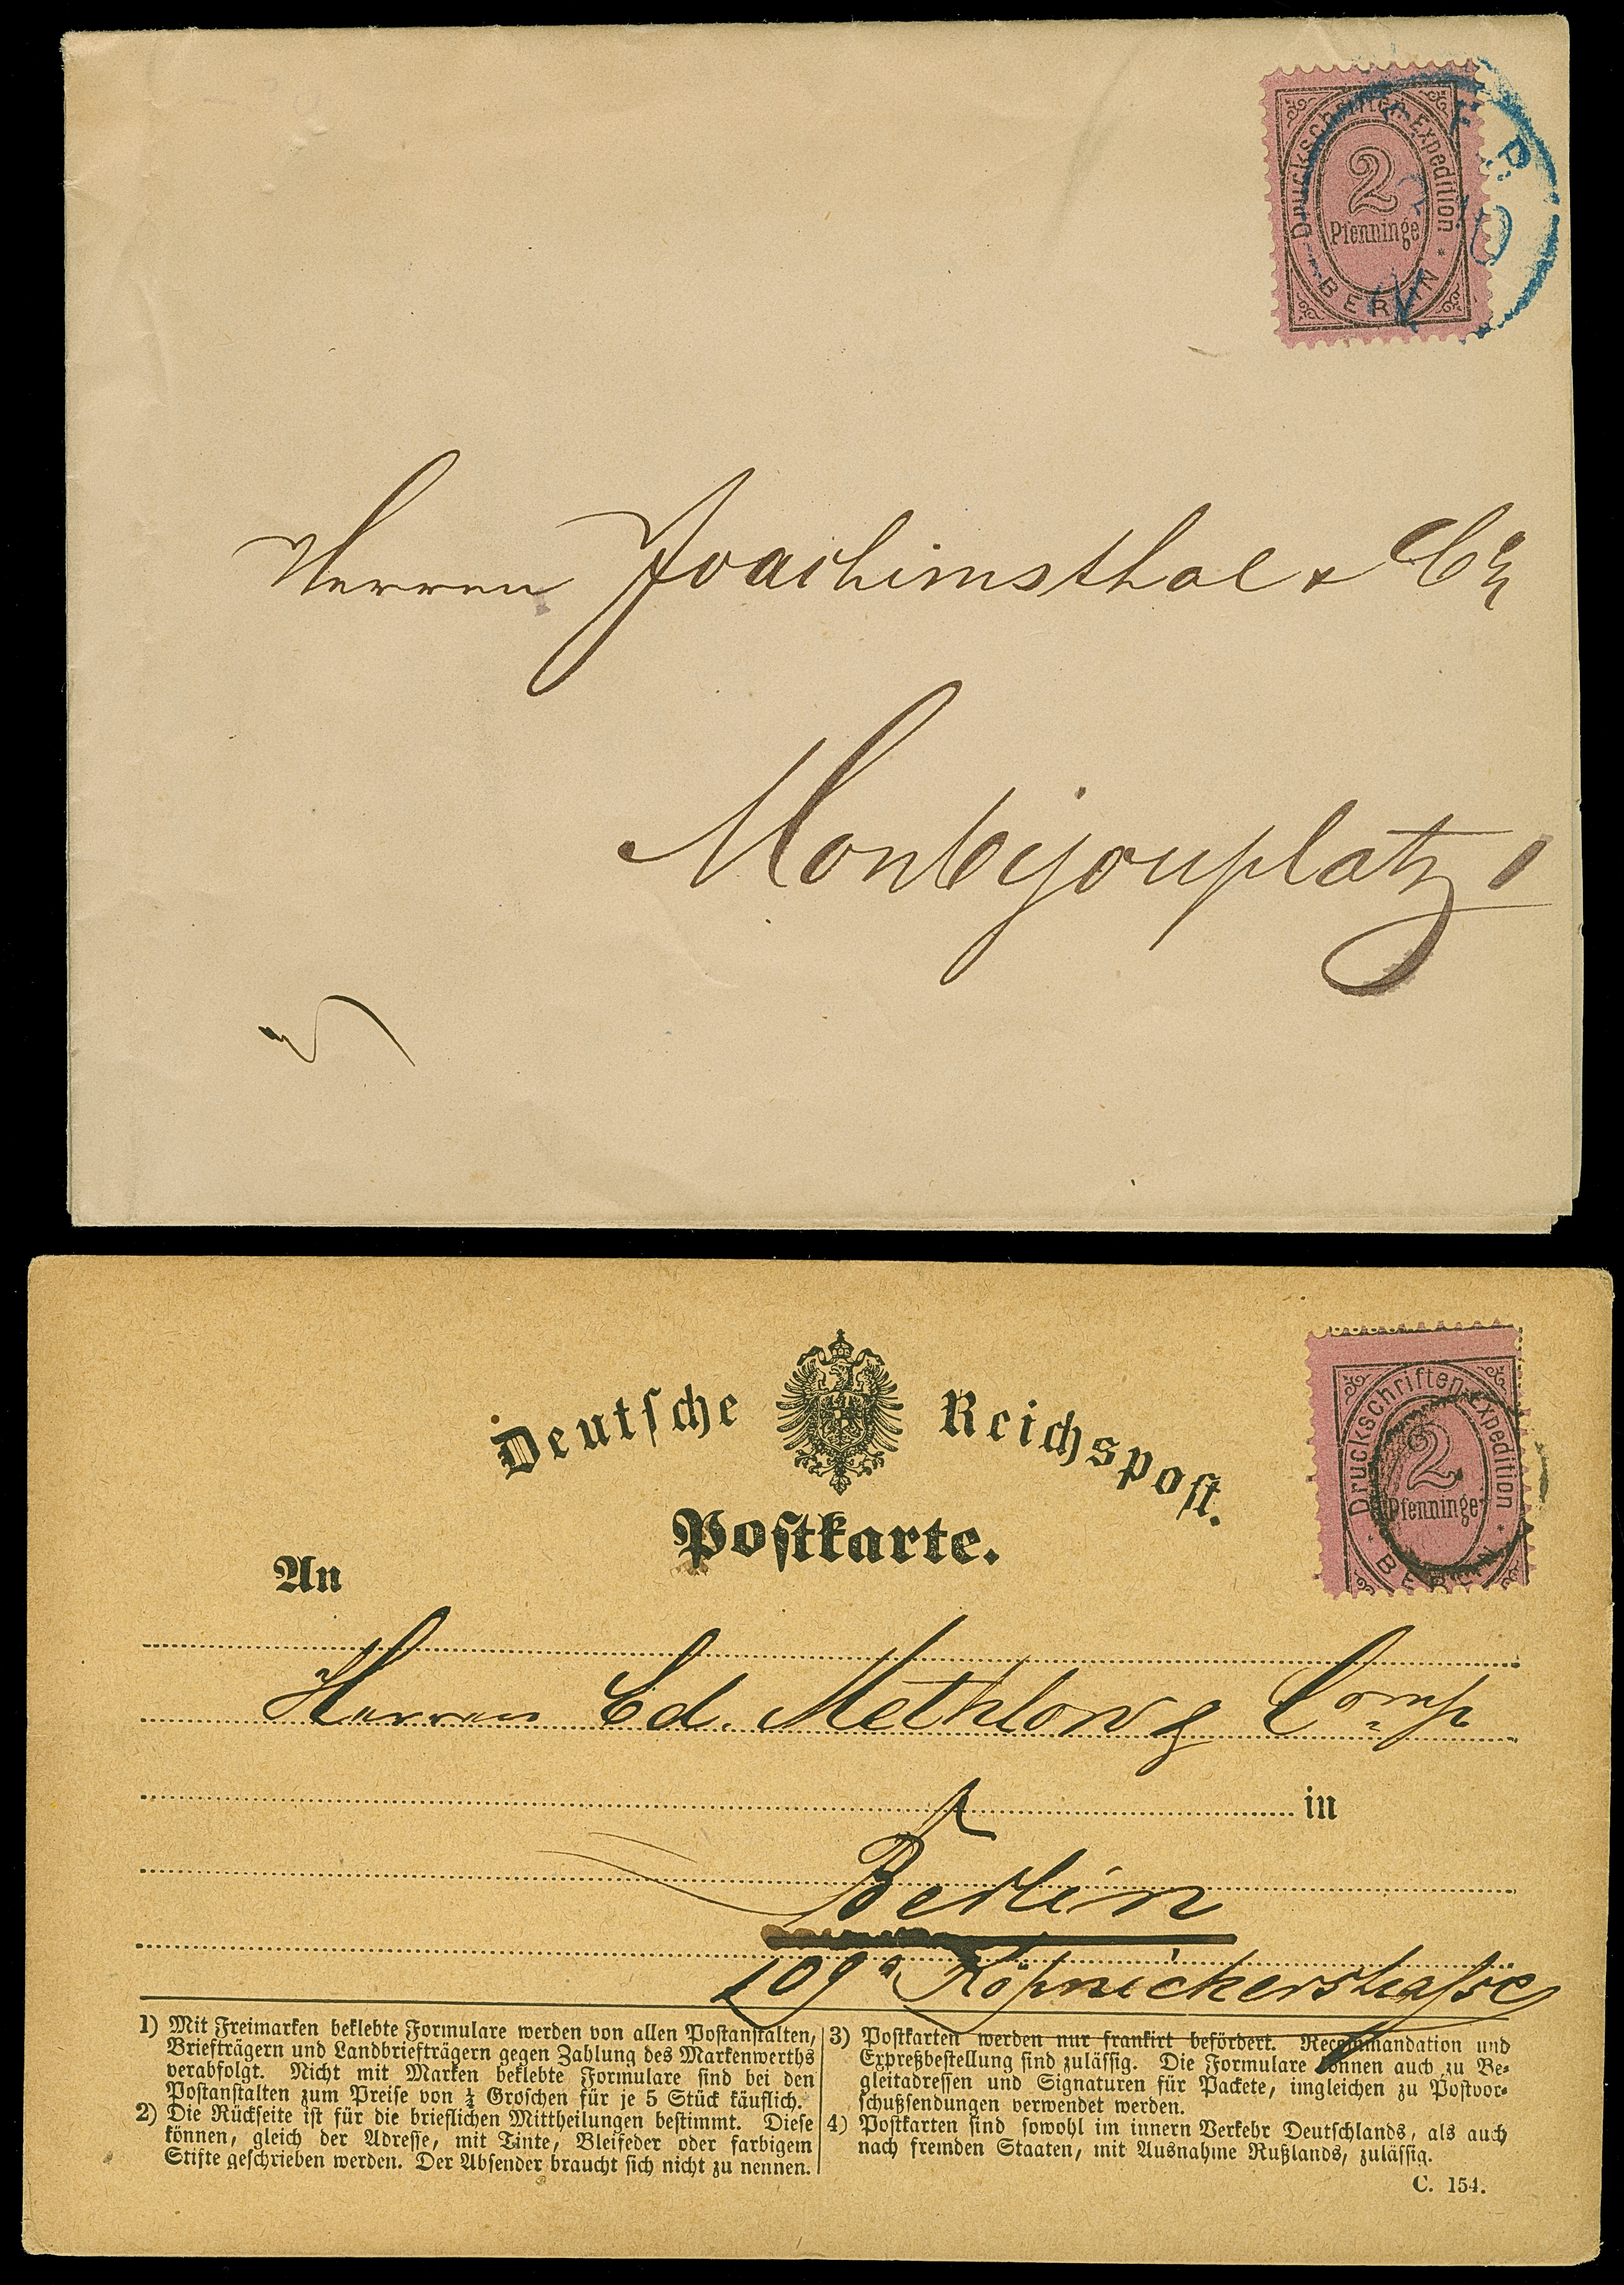 Druckschriften-Expedition
2
Pfenninge
* BERLIN *
Herren Joachimsthal & Co
Monbijouplatz 1
Deutsche Reichspost.
Postkarte.
Druckschriften-Expedition
2
Pfenninge
* BERLIN *
An
Herren Ed. Methlow & Comp
in
Berlin
109a Köpnickerstraße
1) Mit Freimarken beklebte Formulare werden von allen Postanstalten,
Briefträgern und Landbriefträgern gegen Zahlung des Markenwerths
verabfolgt. Nicht mit Marken beklebte Formulare sind bei den
Postanstalten zum Preise von ¼ Groschen für je 5 Stück käuflich.
2) Die Rückseite ist für die brieflichen Mittheilungen bestimmt. Diese
können, gleich der Adresse, mit Tinte, Bleifeder oder farbigem
Stifte geschrieben werden. Der Absender braucht sich nicht zu nennen.
3) Postkarten werden nur frankirt befördert. Recommandation und
Expreßbestellung sind zulässig. Die Formulare können auch zu Be-
gleitadressen und Signaturen für Packete, imgleichen zu Postvor-
schußsendungen verwendet werden.
4) Postkarten sind sowohl im innern Verkehr Deutschlands, als auch
nach fremden Staaten, mit Ausnahme Rußlands, zulässig.
C. 154.